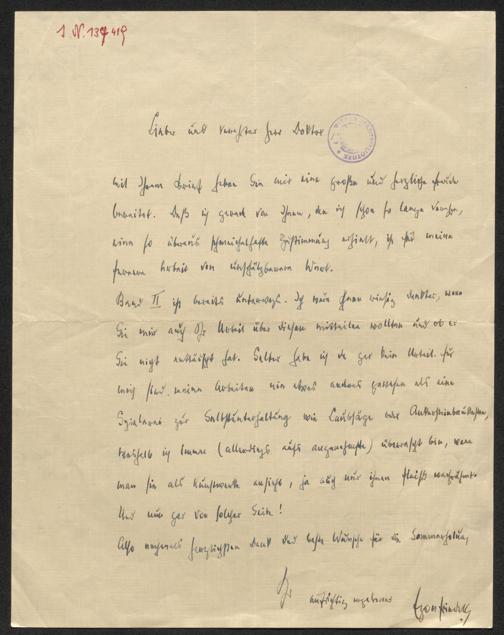 I N. 137419
Lieber und verehrter Herr Doktor
mit Ihrem Brief haben Sie mir eine große und herzliche Freude
bereitet. Daß ich gerade von Ihnen, den ich schon so lange verehre,
eine so überaus schmeichelhafte Zustimmung erhielt, ist für meine
ferneren Arbeit von unschätzbarem Wert.
Band II ist bereits unterwegs. Ich wäre Ihnen riesig dankbar, wenn
Sie mir auch Ihr Urteil über diesen mitteilen wollten und ob er
Sie nicht enttäuscht hat. Selber habe ich da gar kein Urteil. Für
mich sind meine Arbeiten nie etwas anderes gewesen als eine
zur Selbstunterhaltung wie Laubsäge oder Ankersteinbaukasten,
weshalb ich immer (allerdings aufs angenehmste) überrascht bin, wenn
man sie als Kunstwerke ansieht, ja auch nur ihnen Fleiß nachrühmt.
Und nun gar von solcher Seite!
Also nochmals herzlichsten Dank und beste Wünsche für die Sommerholung,
Ihr
aufrichtig ergebener Egon Friedell